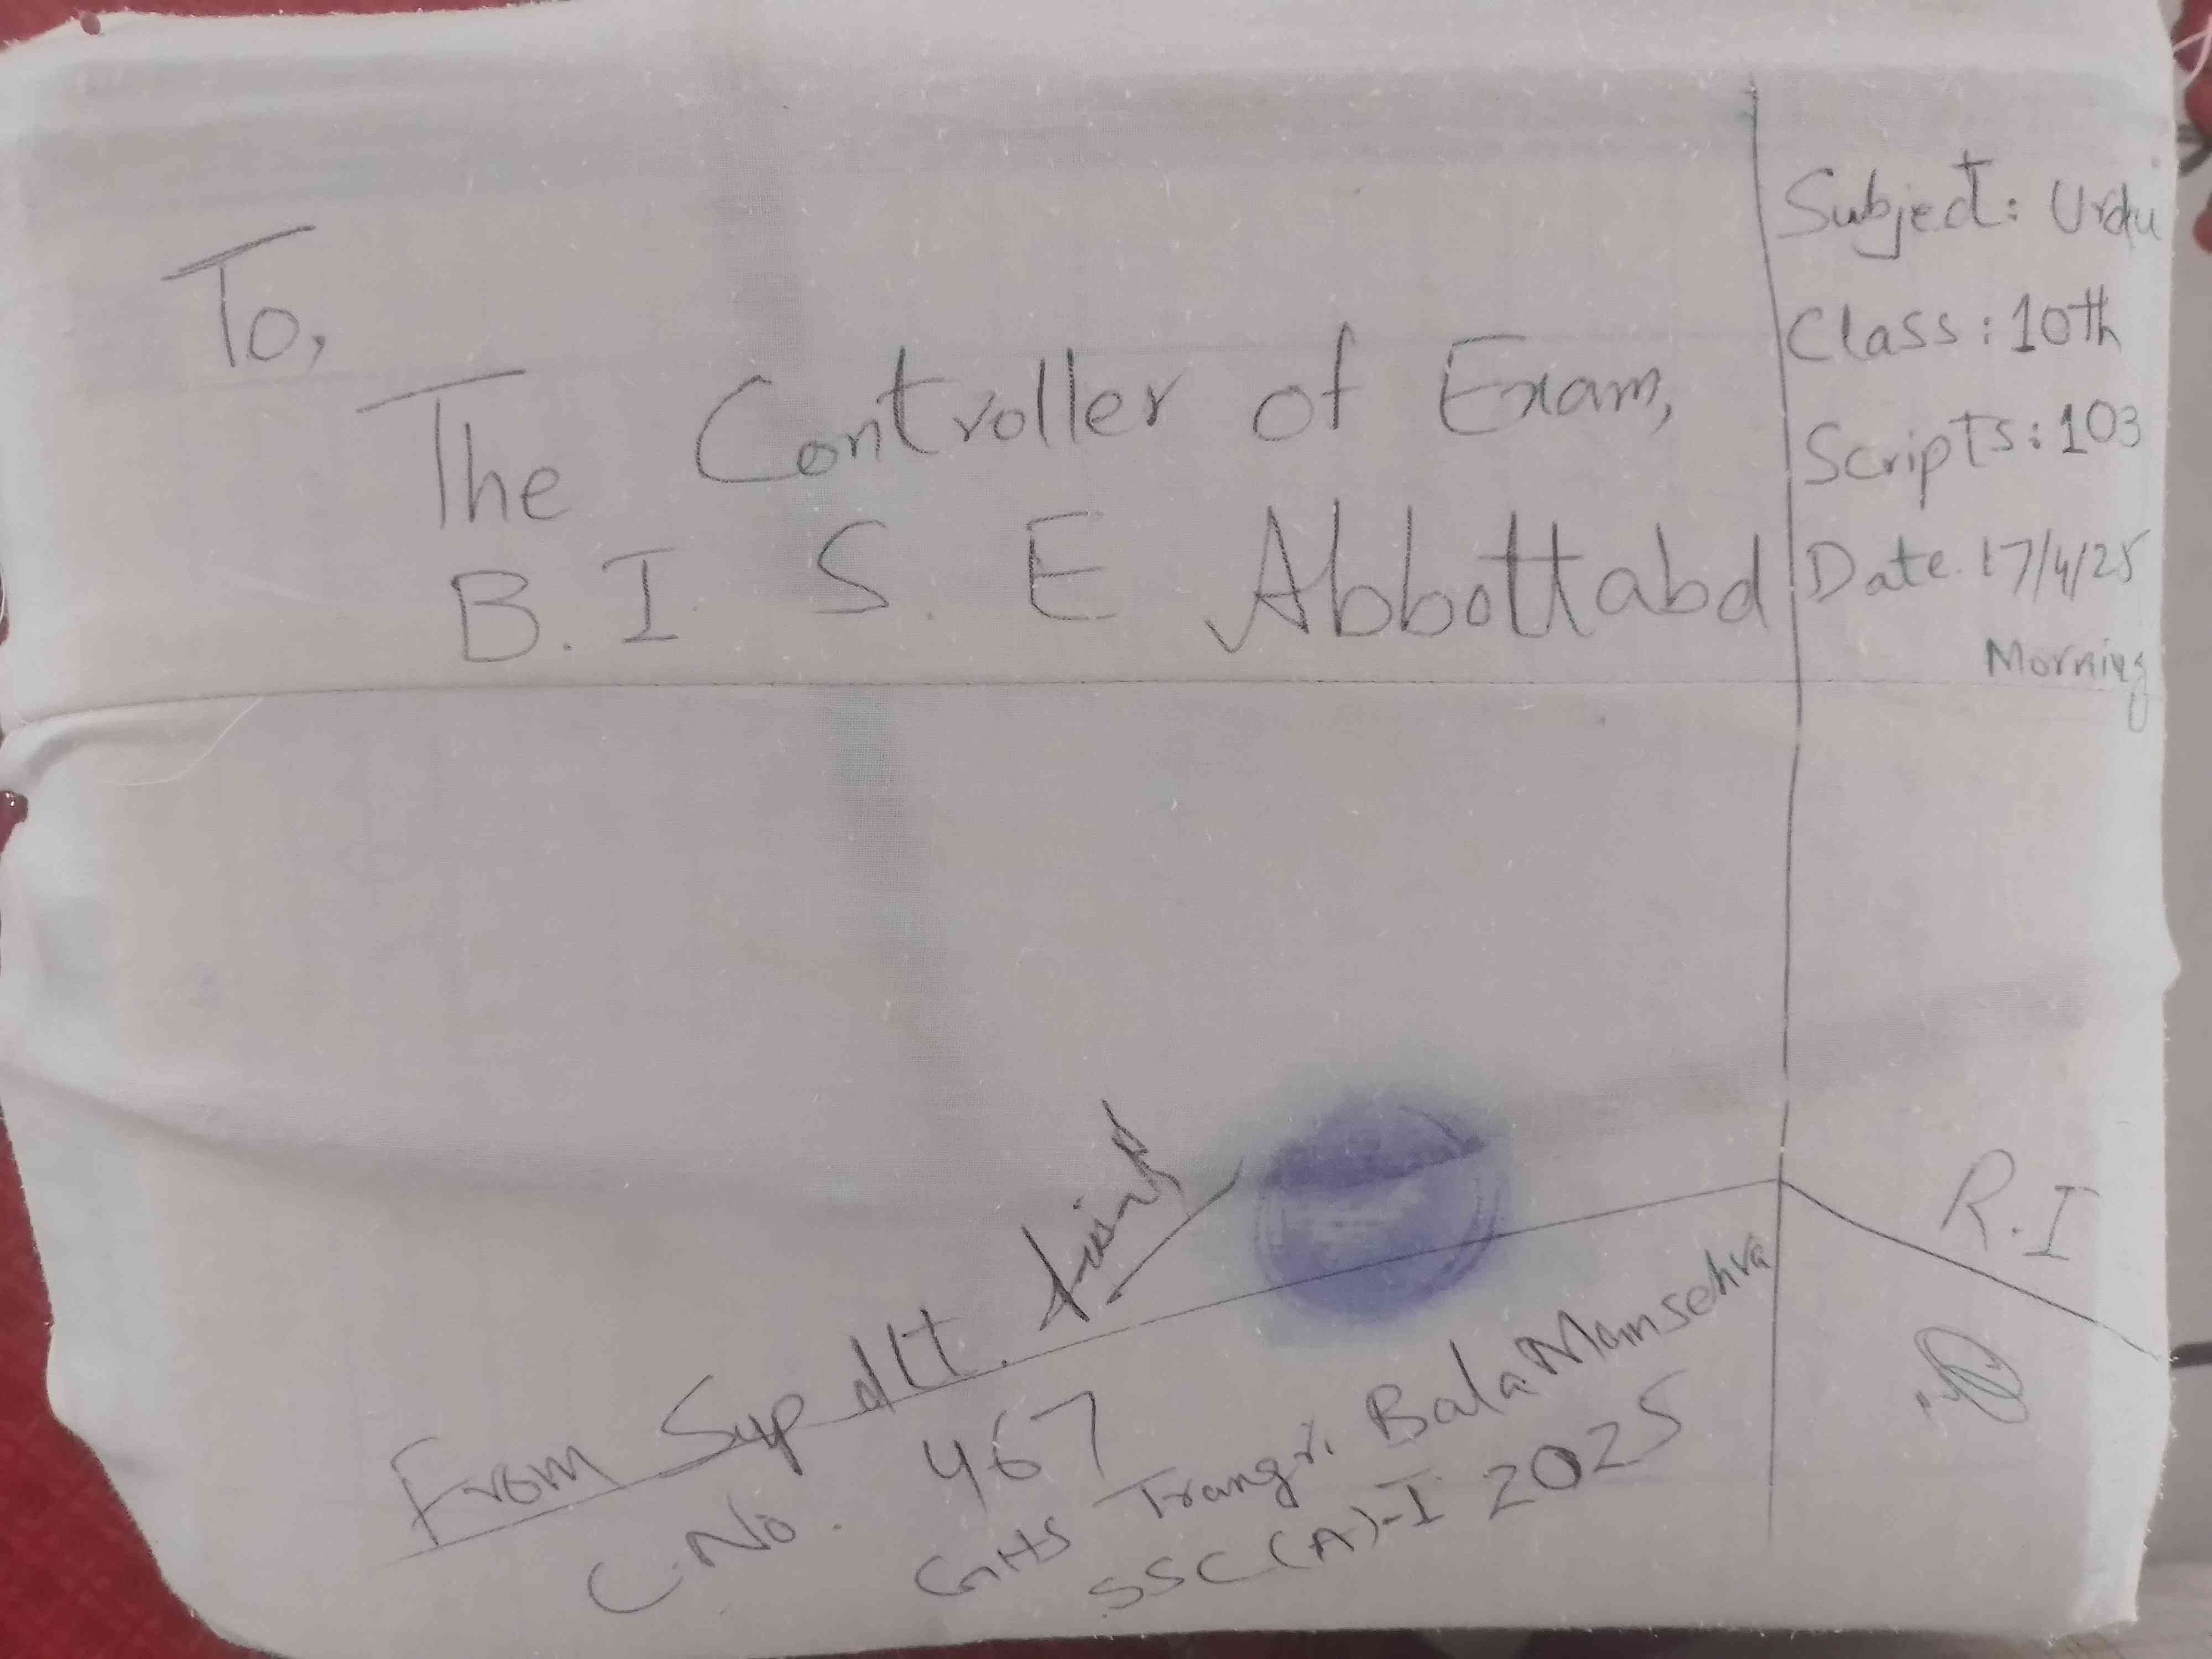 To,
The Controller of Exam,
B.I.S.E Abbottabd
Subject: Urdu
Class: 10th
Scripts: 103
Date. 17/4/25
Morning
From Supdtt.
C.No. 467
GHS Trangri Bala Mansehra
SSC(A)-I 2025
R.I